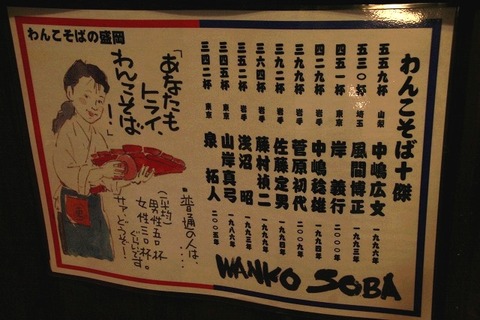 わんこそばの盛岡
わんこそば十傑
五五九杯 山梨 中嶋広文 一九九六年
五三〇杯 埼玉 風間博正 一九九三年
四五一杯 東京 岸義行 二〇〇〇年
四二九杯 岩手 中嶋稔雄 一九九四年
三九九杯 岩手 菅原初代 二〇〇九年
三七九杯 岩手 佐藤定男 一九九四年
三六四杯 岩手 藤村禎二 一九九九年
三五二杯 岩手 浅沼昭 一九九三年
三四五杯 東京 山岸真弓 一九八六年
三四二杯 東京 泉拓人 二〇〇五年
「あなたも
トライ、
わんこそば
！」
・普通の人は…
(平均)男性五〇杯
女性三〇杯。
ぐらいです
サァどうぞ！
WANKO SOBA